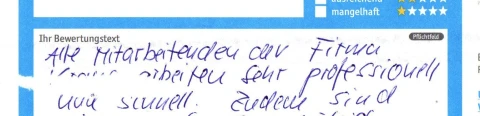 ausreichend
mangelhaft
Ihr Bewertungstext
Pflichtfeld
Alle Mitarbeitenden der Firma
arbeiten sehr professionell
und schnell. Zudem sind